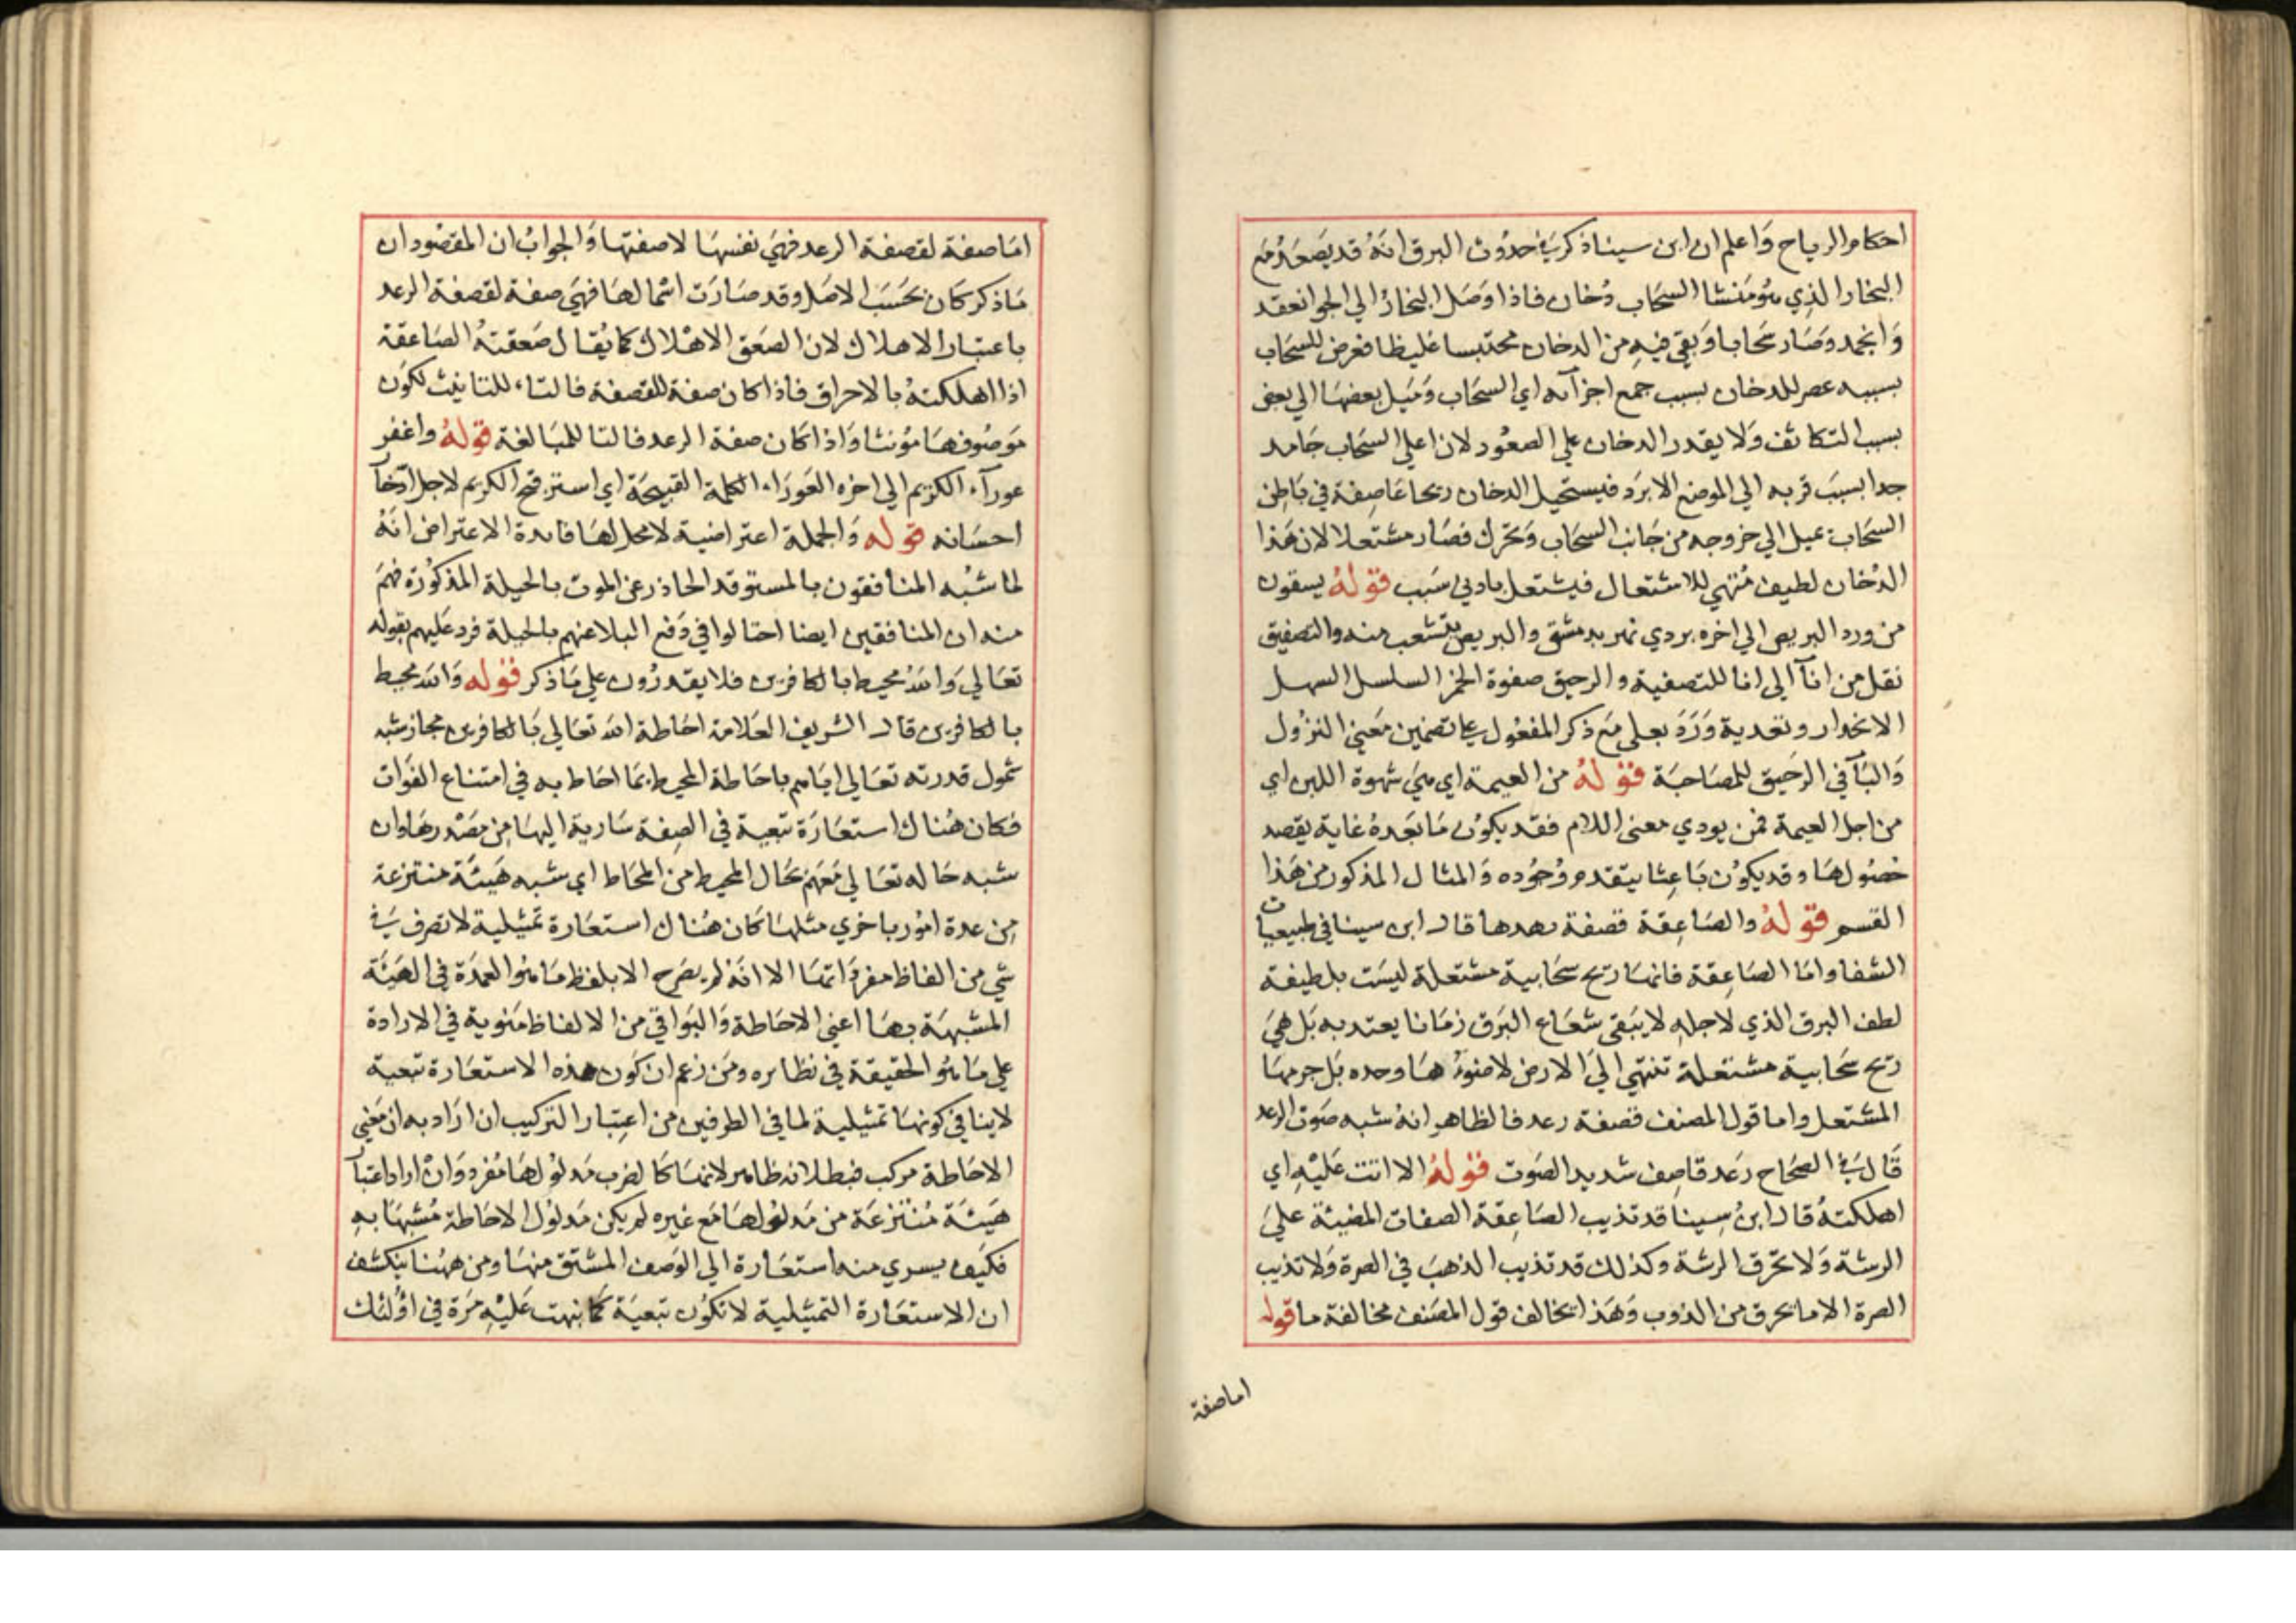 احكام الرياح وَاعلم ان ابن سينا ذكر في حدُوث البرق انهُ قد يصَعدُ مَع
البخار الذي هُو مَنشا السحَاب دُخان فاذا وَصَل البخارُ الي الجو انعقد
وَانجمد وصَار سحَابا وَبقي فيهِ من الدخان محتبسا غليظا فعرض للسحَاب
بسببه عصر للدخان بسبب جمع اجزآئه اي السحَاب وَميَل بعضهَا الي بعض
بسبب التكاثف وَلا يقدر الدخان علي الصعُود لان اعلي السحَاب جَامد
جدا بسبَب قربه الي الموضع الابرَد فيستحيل الدخان ريحا عَاصِفة في بَاطِن
السحَاب يميل الي خروجه من جَانب السحَاب وَتحرك فصَار مشتعلا لان هَذا
الدُخان لطيف مُتهي للاشتعال فيشتعل بادني سَبب قولهُ يسقون
من ورد البريص الي اخره بردي نهر بدمشق والبريص يتشعب منه والتصفيق
نقل من انآ الي انا للتصفية والرحيق صفوة الخمر السلسل السهل
الانحدار وتعدية وَرَدَ بعلي مَع ذكر المفعُول علي تضمين مَعني النزُول
وَالبَآ في الرَحيق للمصَاحبَة قولهُ من العيمة اي هيَ شهوة اللبن اي
من اجل العيمة فمن يودي معنى اللام فقد يكوُن مَا بَعَدهُ غاية يقصد
حصُولهَا وقد يكوُن بَاعِثا يتقدم وُجُوده وَالمثال المذكور من هَذا
القسم قولهُ والصَاعِقة قصفة رعدها قال ابن سينا في طبيعيات
الشفا واما الصَاعِقة فانهَا ريح سحَابية مشتعلة ليسَت بلطيفة
لطف البرق الذي لاجلهِ لا يَبقى شعَاع البَرق زمَانا يعتد به بَل هيَ
ريح سحَابية مشتعلة تنتهي اليَ الارض لا ضوءُهَا وحده بَل جرمهَا
المشتعل واما قول المصنف قصفة رعد فالظاهر انهُ شبه صَوت الرعد
قَال في الصحَاح رَعد قاصِف شديد الصَوت قولهُ الا اتت عَليْهِ اي
اهلكتهُ قال ابنُ سِينا قد تذيب الصَاعِقة الصفات المضيئة عليَ
الرشة وَلا تحرَق الرشة وكذلك قد تذيب الذهبَ في الصرة وَلا تذيب
الصرة الا ما يحرق من الذوب وَهَذا يخالف قول المصَنف مخالفة ما قوله
اما صفة
امَا صفة لقصفة الرعد فهيَ نفسهَا لا صفتها وَالجوابُ ان المقصُود ان
مَا ذكر كان بحَسَب الاصَل وقد صَارَت اسمًا لهَا فهيَ صفة لقصفة الرعد
باعتبار الاهلاك لان الصعَق الاهْلاك كما يُقال صَعقتهُ الصَاعقة
اذا اهلكتهُ بالاحراق فاذا كان صفة للقصفة فالتاء للتانيث لكوَن
مَوصُوفهَا مؤنثا وَاذا كان صفة الرعد فالتا للمبَالغة قولهُ واغفر
عورآء الكريم الي اخره العَورَاء الكلمة القبيحَة اي استر قبح الكريم لاجل ادّخآ
احسَانه قوله وَالجملة اعتراضية لا محل لهَا فايدة الاعتراض انهُ
لما شبُه المنافقون بالمستوقد الحاذر عن الموت بالحيلة المذكوُرة فهمَ
منه ان المنافقين ايضا احتالوا في دَفع البلا عنهم بالحيلة فرد عَليهم بقوله
تعَالي وَاللهُ محيط بالكافرين فلا يقدرُون علي مَا ذكر قوله وَالله محيط
بالكافرين قال الشريف العَلامة احَاطة الله تعَالي بَالكافرين مجاز شبه
شمول قدرته تعَالي ايَاهم باحَاطة المحيط بمَا احَاط به في امتناع الفَوات
فكان هُناك استعَارَة تبعية في الصِفة سَارية اليهَا مِن مصَدرهَا وان
شبه حَاله تعَالي مَعَهم بحَال المحيط من المحَاط اي شبه هَيئَة منتزعة
مِن عدة امُور باخري مثلهَا كان هُناك استعَارة تمثيلية لا تصرف في
شي من الفاظ مفردَاتهَا الا انهُ لم يصَرح الا بلفظ مَا هوُ العمدَة في الهَيئَة
المشبهَة بهَا اعني الاحَاطة وَالبوَاقي من الالفاظ مَنوية في الارادة
علي مَا هوُ الحقيقة في نظايره ومَن زعَم ان كوَن هذه الاستعَارة تبعية
لا ينافي كونهَا تمثيلية لما في الطرفين من اعِتبار التركيب ان ارَاد به ان مَعني
الاحَاطة مركب فبطلانه ظاهر لانهَا كالضرب مَدلوُلهَا مُفرد وَانْ اراد اعتبآ
هَيئَة مُنتزعَة من مَدلوُلهَا مَع غيره لم يكن مَدلوُل الاحَاطة مُشبهَا بهِ
فكيَف يسري منه استعَارة الي الوَصف المشتق منهَا ومن ههُنا ينكشف
ان الاستعَارة التمثيلية لا تكوُن تبعيَة كما نبهت عَليْهِ مَرة في اوُلئك